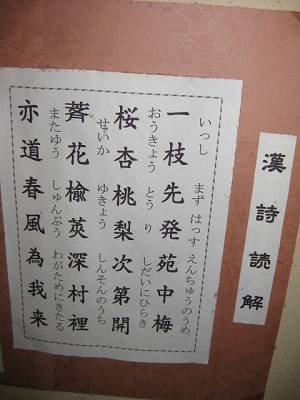 漢詩読解
いっし まず はっす えんちゅうのうめ
一枝先発苑中梅
おうきょう とう り しだいにひらき
桜杏桃梨次第開
せいか ゆきょう しんそんのうち
薺花楡莢深村裡
またゆう しゅんぷう わがためにきたる
亦道春風為我来